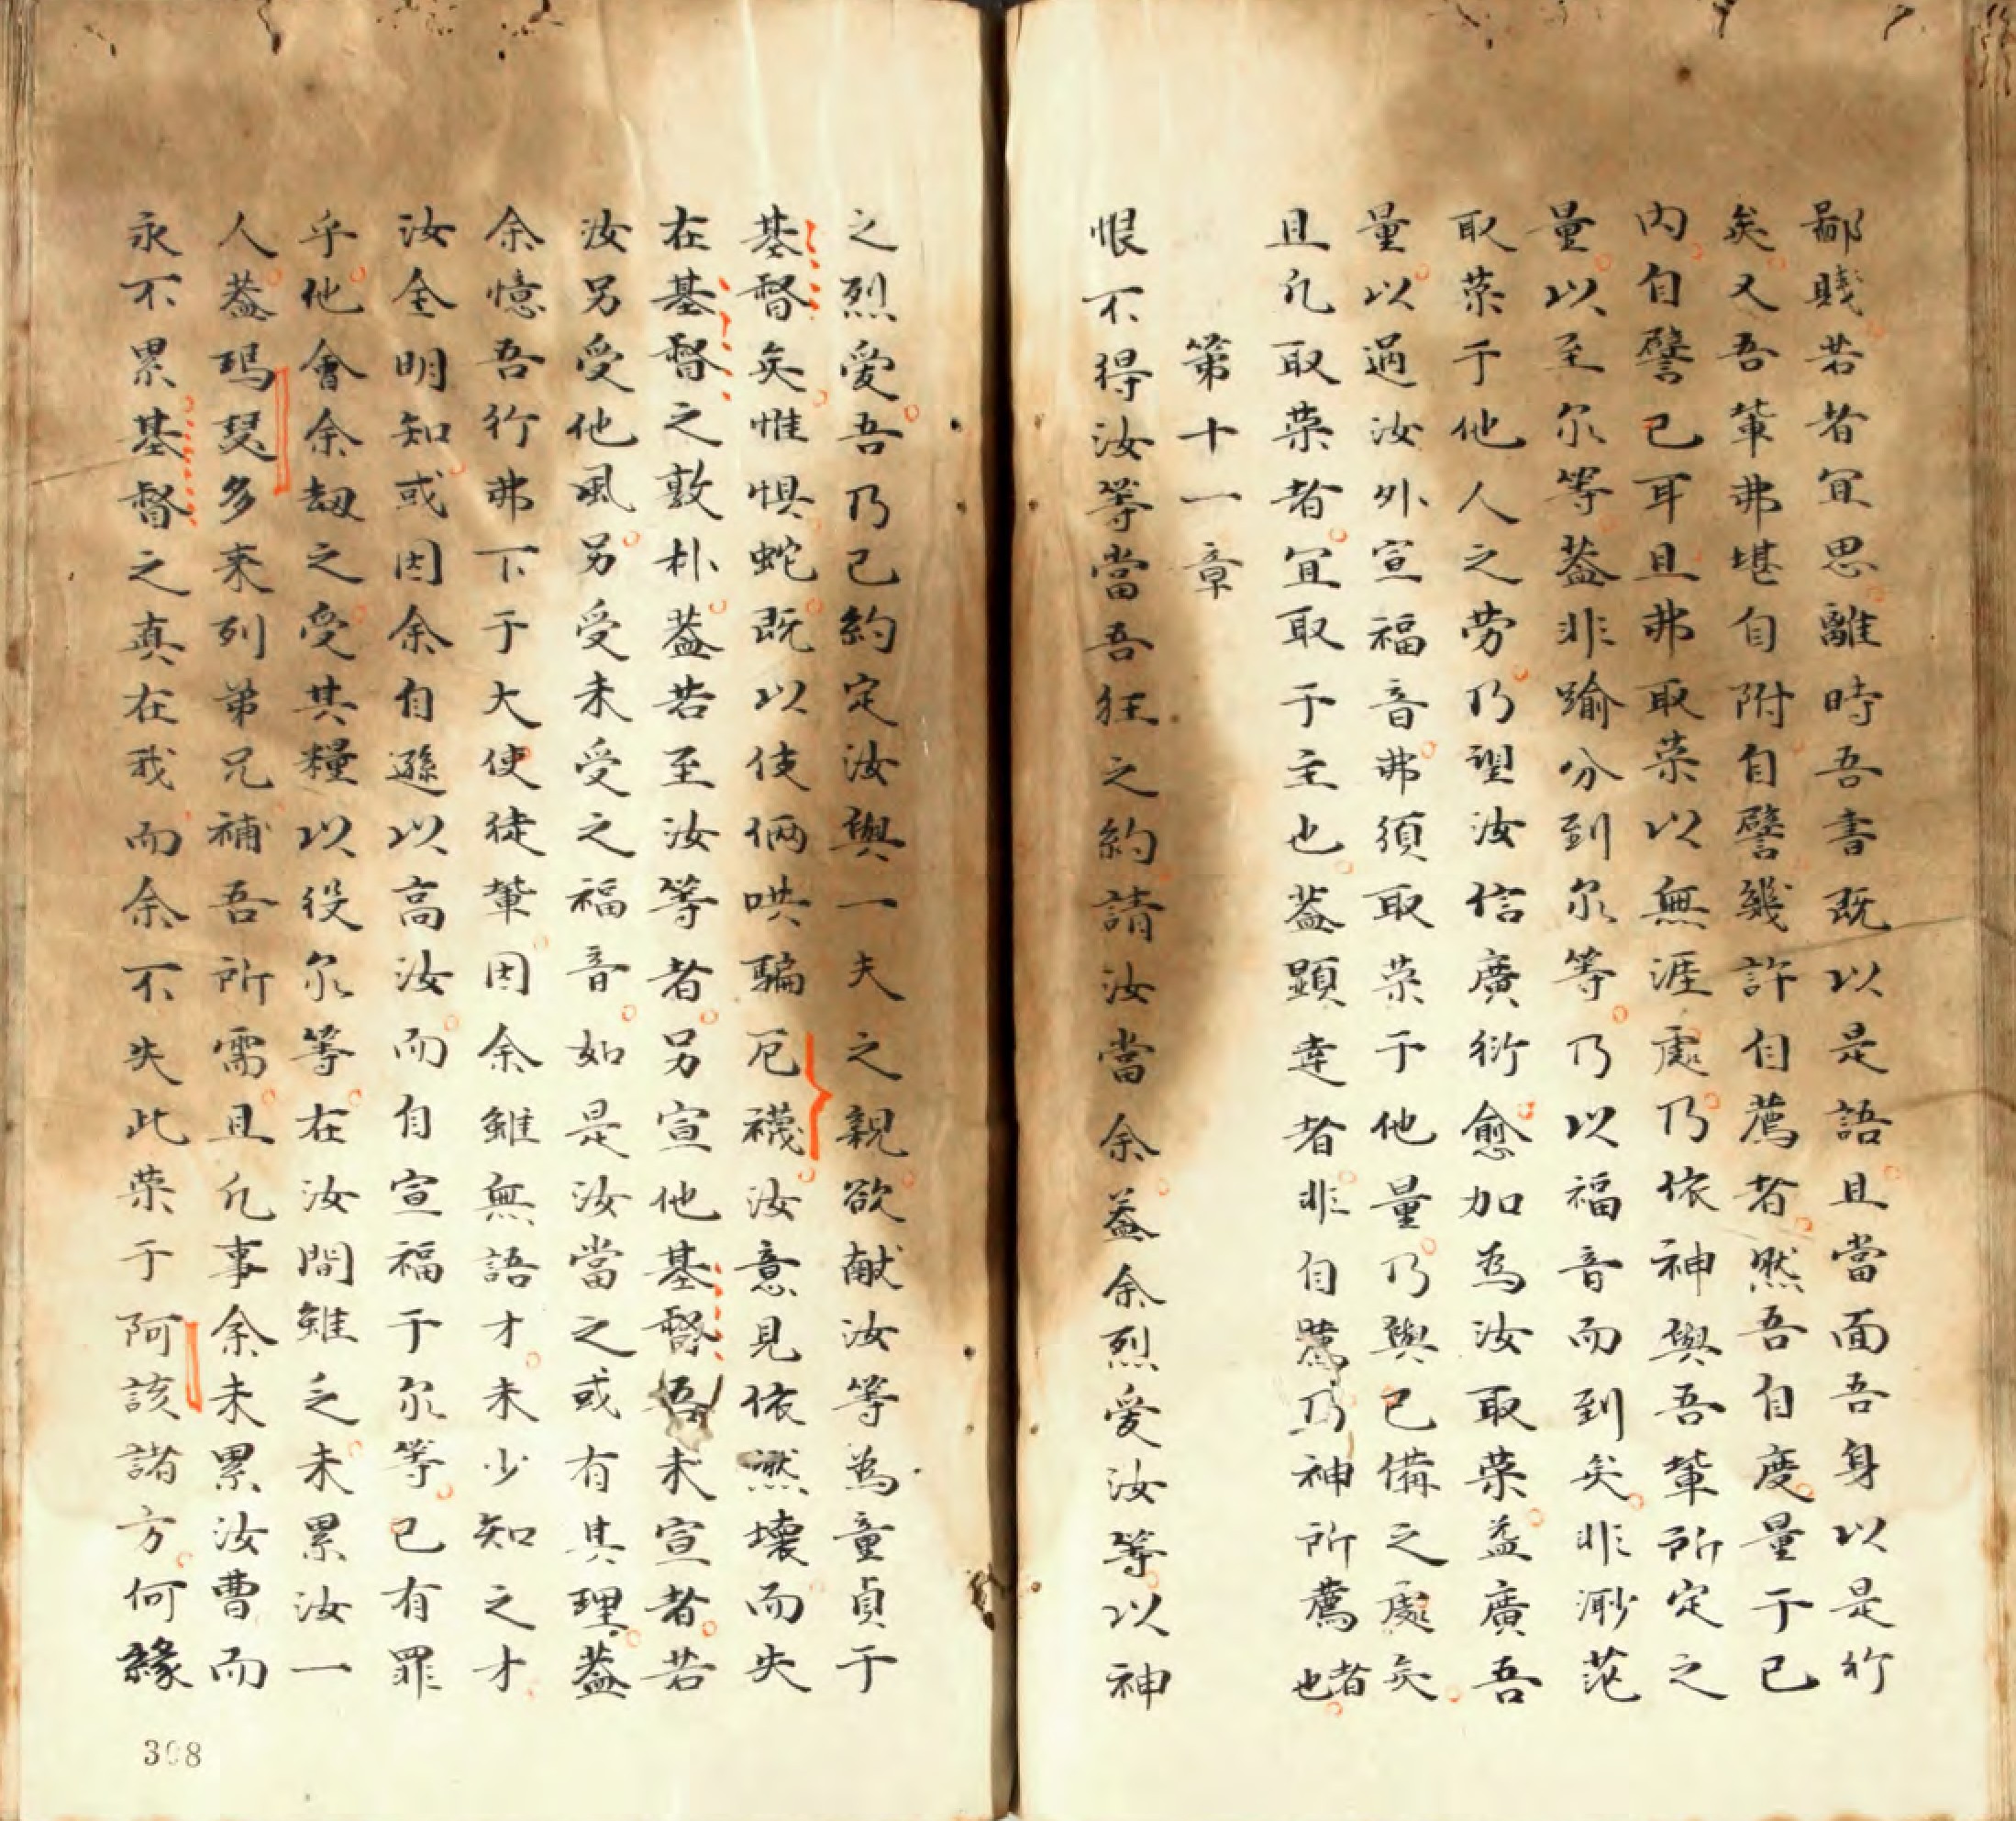 鄙賤若者宜思離時吾書既以是語且當面吾身以是行
矣又吾輩弗堪自附自譬幾許自薦者然吾自度量于己
內自譬己耳且弗取荣以無涯處乃依神與吾輩所定之
量以至尔等葢非踰分到尔等乃以福音而到矣非渺茫
取荣于他人之劳乃望汝信廣衍愈加為汝取荣益廣吾
量以過汝外宣福音弗須取荣于他量乃與己備之處矣
且凢取荣者宜取于主也葢顕達者非自薦乃神所薦者也
第十一章
恨不得汝等當吾狂之約請汝當余葢余烈爱汝等以神
之烈愛吾乃已約定汝與一夫之親欲献汝等為童貞于
基督矣惟惧蛇既以使倆哄騙厄襪汝意見依然壊而失
在基督之敦朴葢若至汝等者另宣他基督吾未宣者若
汝另受他風另受未受之福音如是汝當之或有其理葢
余憶吾行弗下于大使徒輩因余雖無語才未少知之才
汝全明知或因余自遜以高汝而自宣福于尔等已有罪
乎他會余刼之受其糧以役尔等在汝間雖乏未累汝一
人葢瑪瑟多来列弟兄補吾所需且凢事余未累汝曹而
永不累基督之真在我而余不失此荣于阿該諸方何緣
308